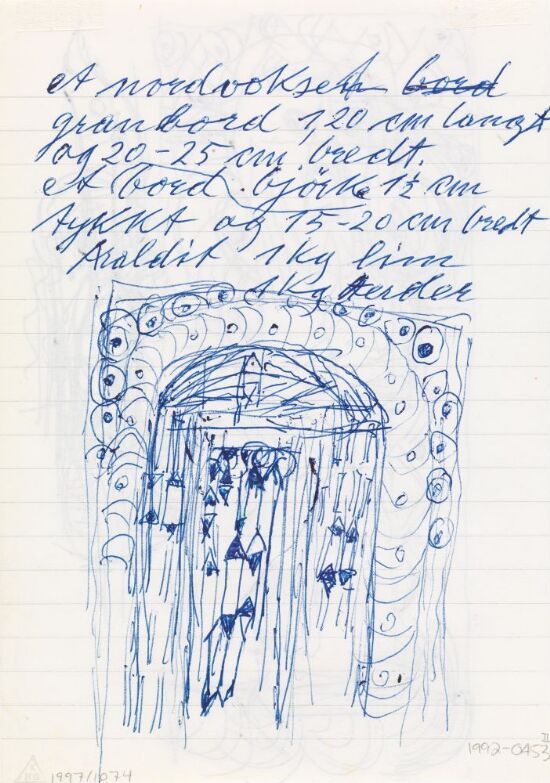 et nordvoksen bord
granbord 1,20 cm langt
og 20-25 cm. bredt.
et bord björk 1½ cm
tykkt og 15-20 cm bredt
Araldit 1Kg lim
1Kg herder
1992-0453
II
1997/1074